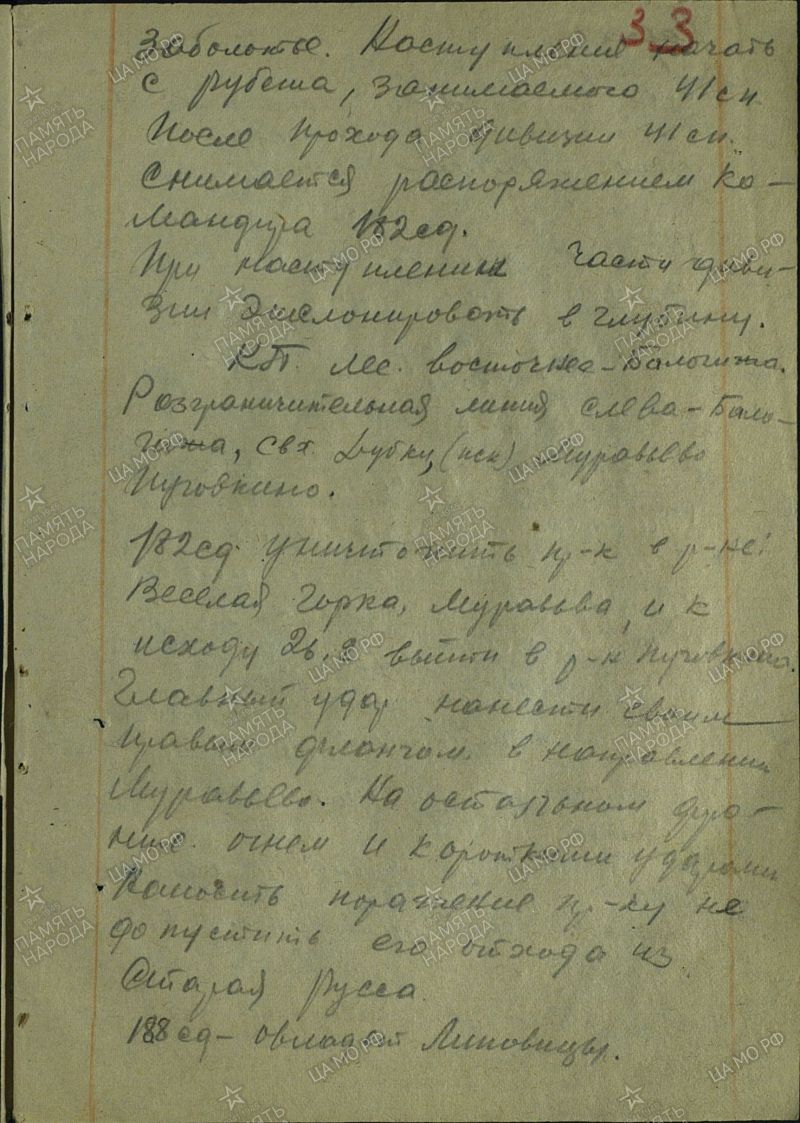 33
Заболотье. Наступление начать
с рубежа, занимаемого 41 сп
После прохода дивизии 41 сп.
снимается распоряжением ко-
мандира 182 сд.
При наступлении части диви-
зии эшелонировать в глубину.
КП. лес. восточнее - Балогижа.
Разграничительная линия слева - Бало-
гижа, свх. Дубки, (иск) Муравьево
Пуговкино.
182 сд уничтожить пр-к в р-не:
Веселая Горка, Муравьева, и к
исходу 26.2 выйти в р-н Пуговкино.
Главный удар нанести своим
правым флангом в направлении
Муравьево. На остальном фро-
нте огнем и короткими ударами
наносить поражение пр-ку не
допустить его отхода из
Старая Русса
188 сд - овладеть Липовицы.
ПАМЯТЬ НАРОДА
ЦА МО РФ